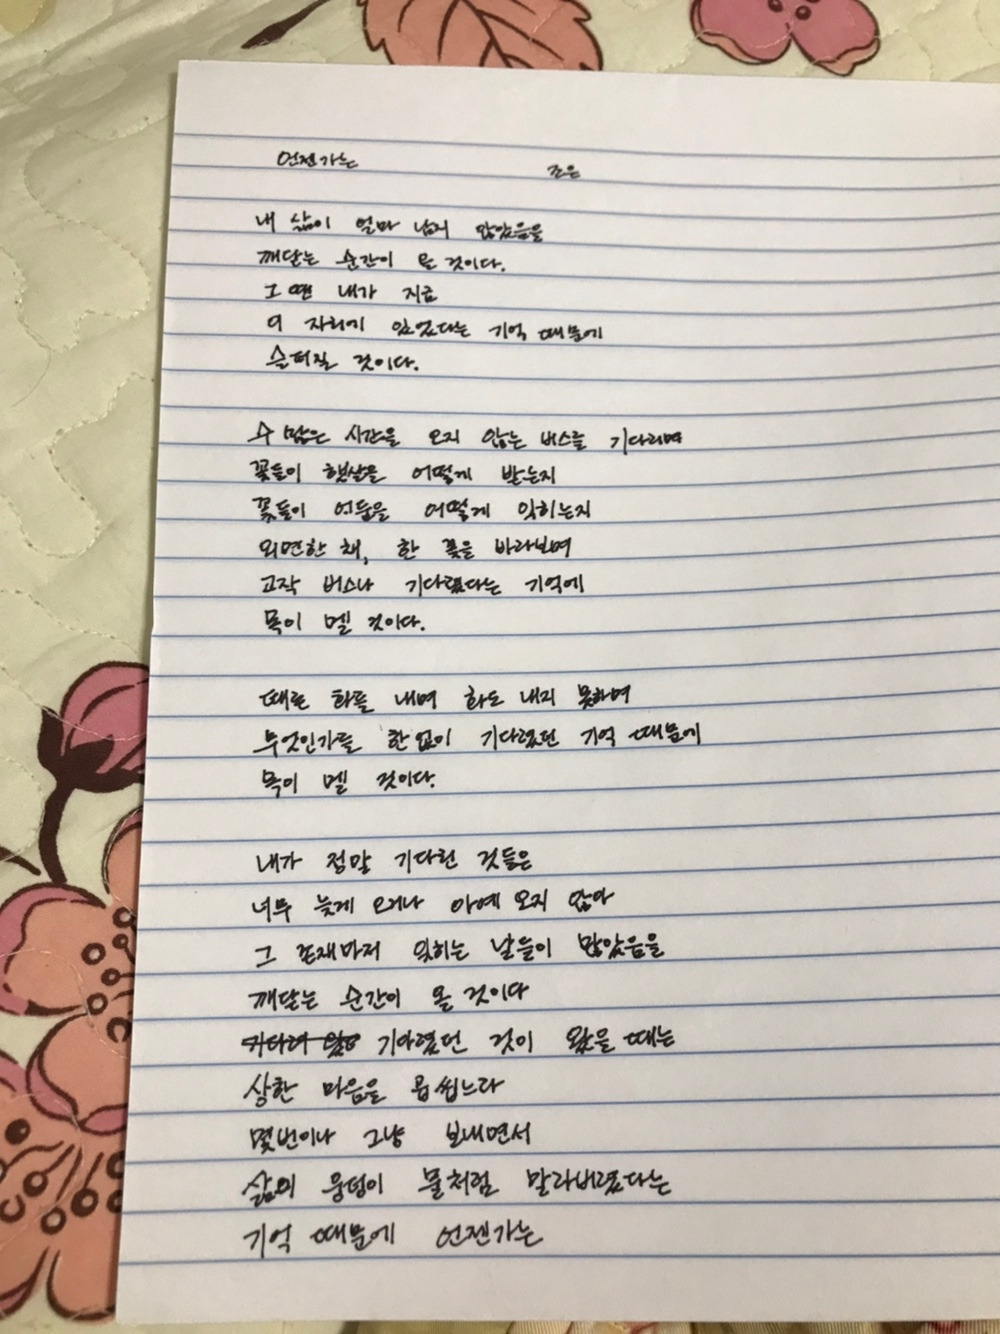 언젠가는 조은
내 삶이 얼마 남지 않았음을
깨닫는 순간이 올 것이다.
그 땐 내가 지금
이 자리에 있었다는 기억 때문에
슬퍼질 것이다.
수 많은 시간을 오지 않는 버스를 기다리며
꽃들이 햇살을 어떻게 받는지
꽃들이 어둠을 어떻게 익히는지
외면한 채, 한 곳을 바라보며
고작 버스나 기다렸다는 기억에
목이 멜 것이다.
때론 화를 내며 화도 내지 못하며
무엇인가를 한없이 기다렸던 기억 때문에
목이 멜 것이다.
내가 정말 기다린 것들은
너무 늦게 오거나 아예 오지 않아
그 존재마저 잊히는 날들이 많았음을
깨닫는 순간이 올 것이다
기다렸던 것이 왔을 때는
상한 마음을 곱씹느라
몇번이나 그냥 보내면서
삶의 웅덩이 물처럼 말라버렸다는
기억 때문에 언젠가는